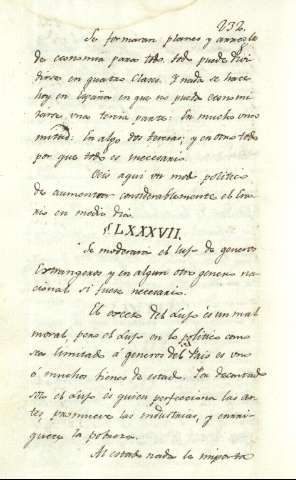 232.
Se formaran planes y arreglo
de economia para todo. todo puede divi
dirse en quatro Clases. Y nada se hace
hoy en España en que no pueda economi
zarse una tercia parte: En mucho una
mitad: En algo dos tercias; y en otro todo
por que todo es innecesario.
Veis aqui un mod politico
de aumentar considerablemente el Era
rio en medio dia.
§ LXXXVII.
Se moderará el Luxo de generos
Extrangeros y en algun otro genero na
cional si fuere necesario.
El exceso del Luxo es un mal
moral, pero el Luxo en lo politico como
sea limitado á generos del Pais es uno
ó muchos bienes de estado. Tan decantado
el Luxo es quien perfecciona las ar
tes, promueve las industrias, y enrri
quece la pobreza.
Al estado nada le importa